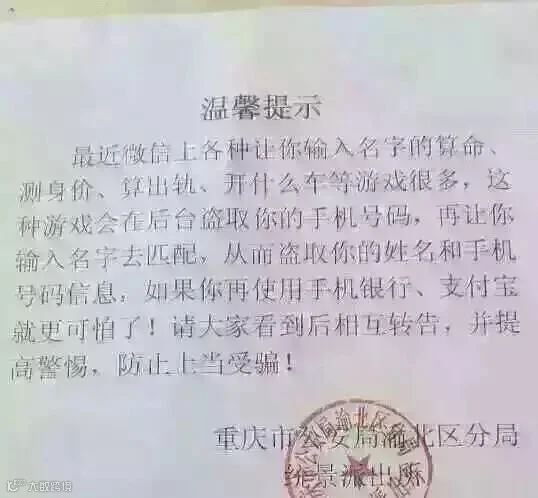 温馨提示
最近微信上各种让你输入名字的算命、
测身价、算出轨、开什么车等游戏很多，这
种游戏会在后台盗取你的手机号码，再让你
输入名字去匹配，从而盗取你的姓名和手机
号码信息，如果你再使用手机银行、支付宝
就更可怕了！请大家看到后相互转告，并提
高警惕，防止上当受骗！
重庆市公安局渝北区分局
景派出所